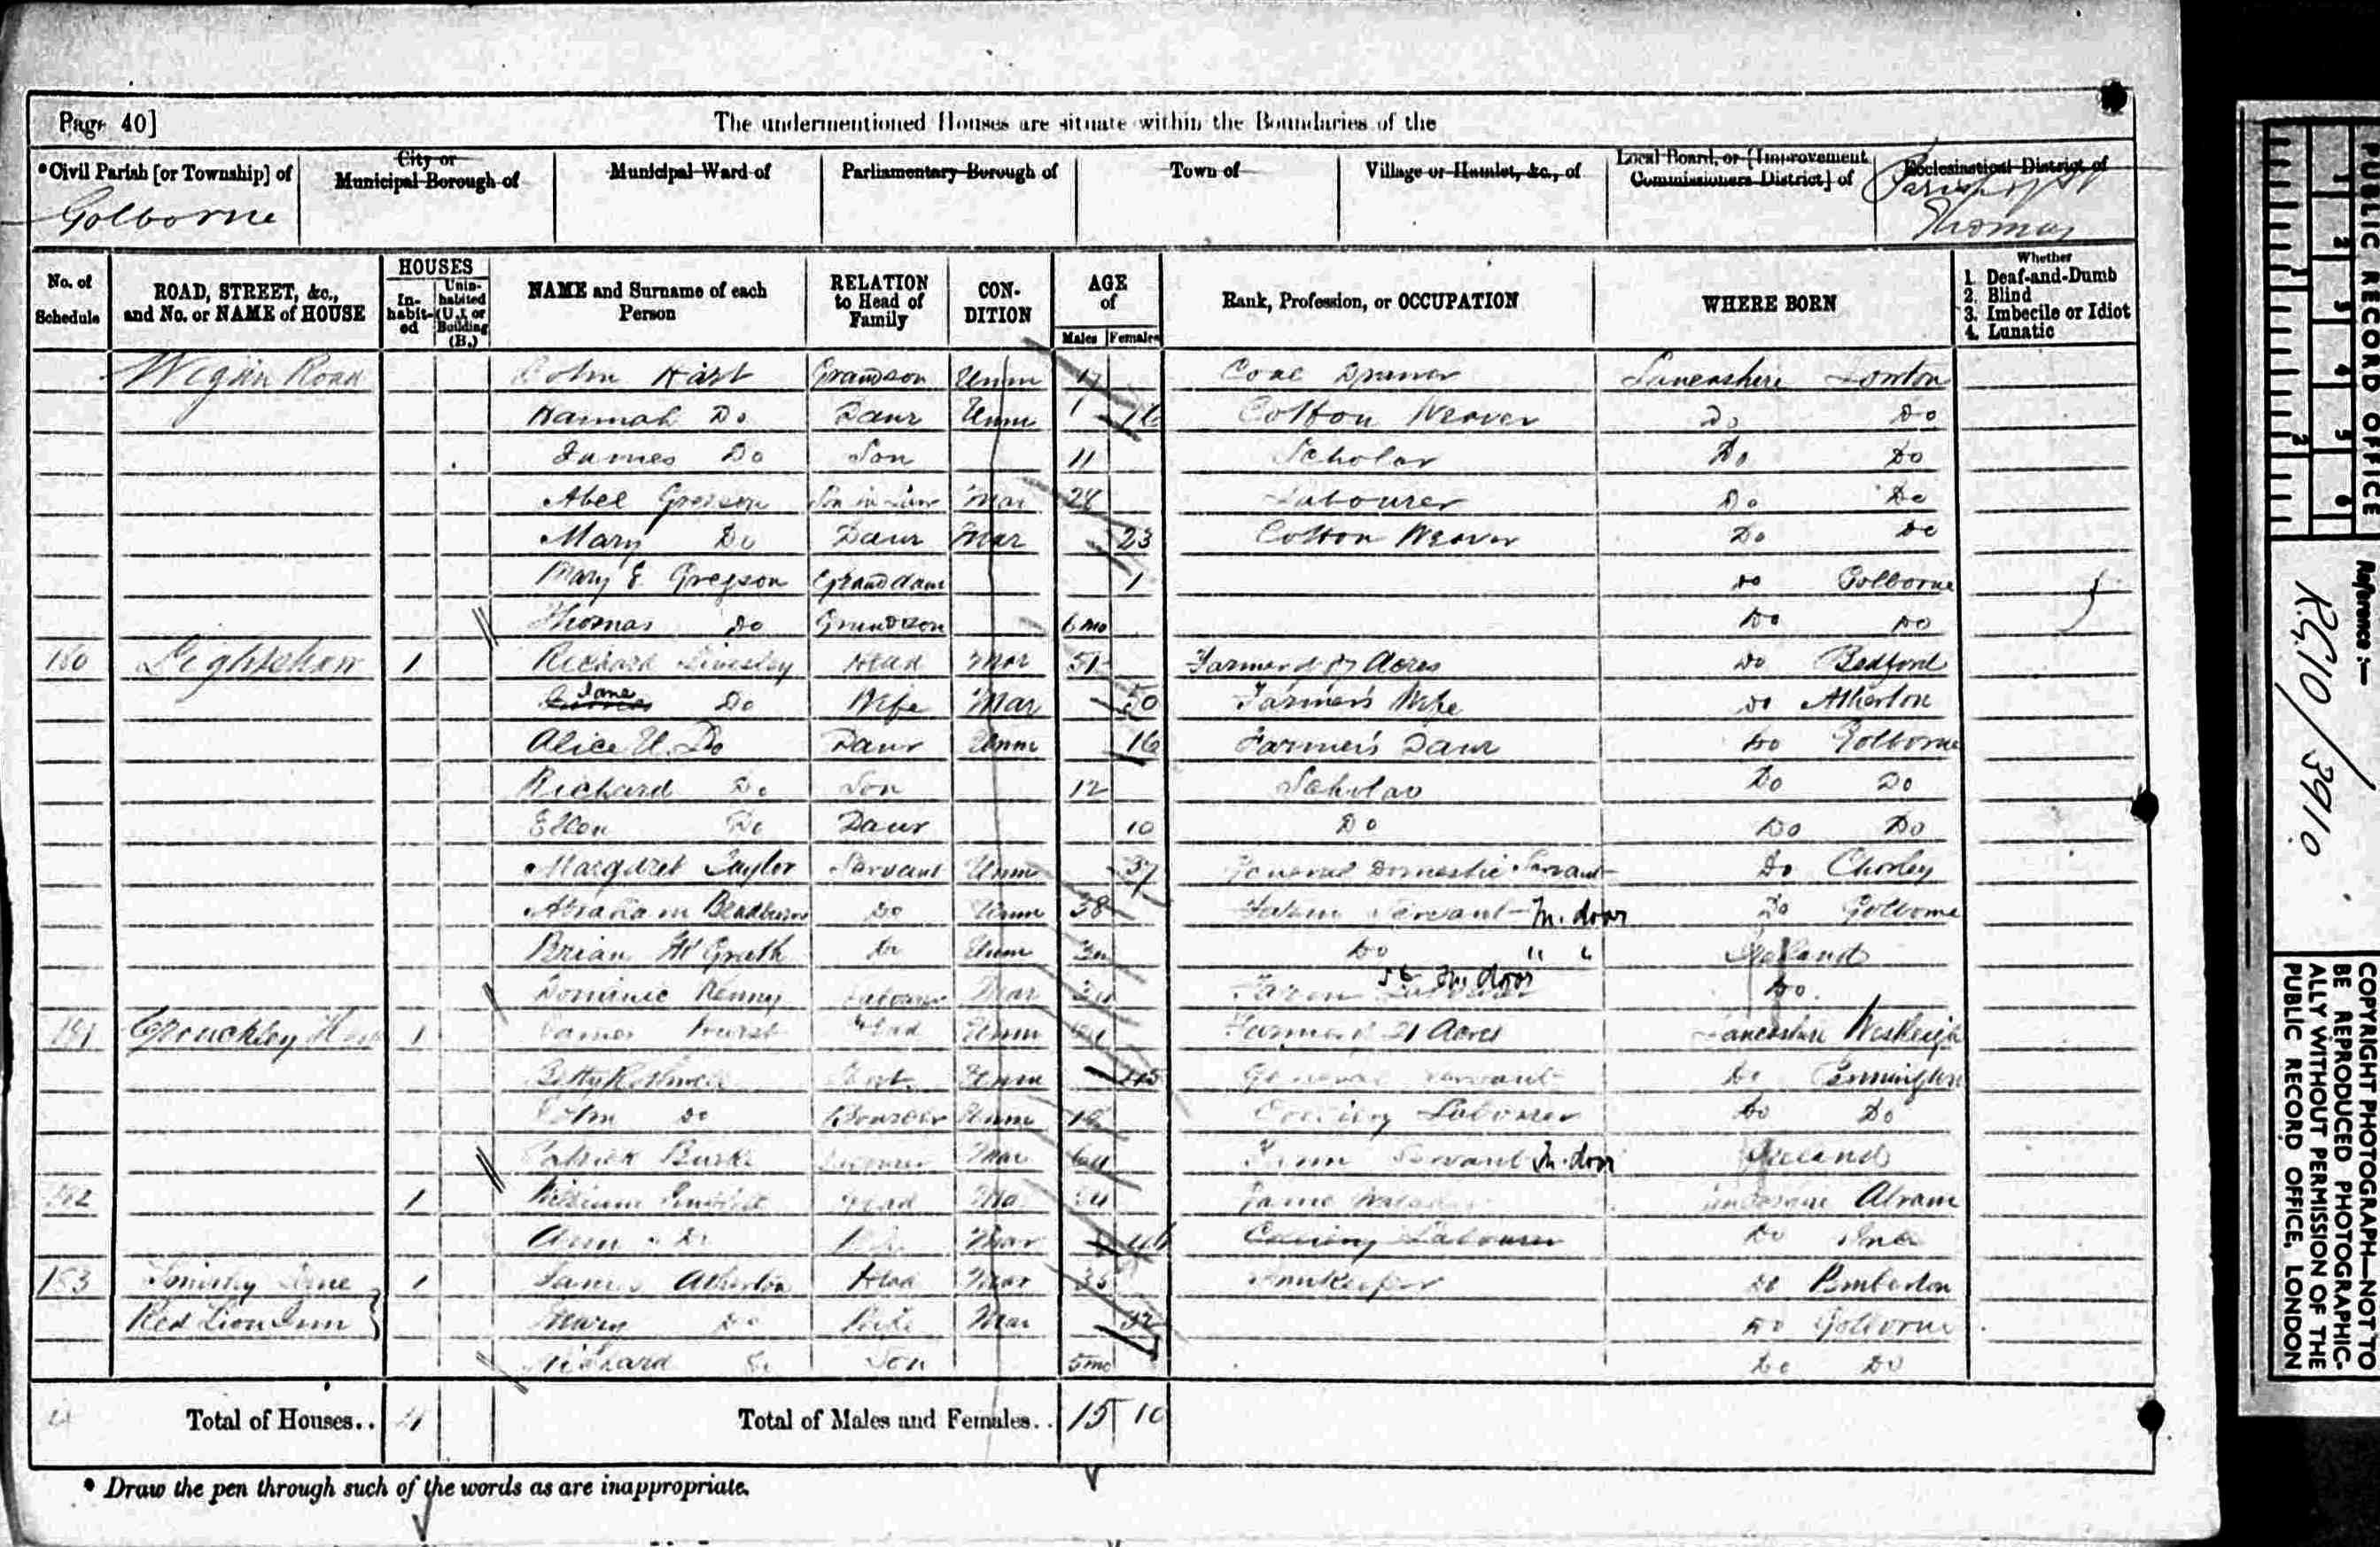 Page 40]
The undermentioned Houses are situate within the Boundaries of the
*Civil Parish [or Township] of
City or Municipal Borough of
Municipal Ward of
Parliamentary Borough of
Town of
Village or Hamlet, &c., of
Local Board, or [Improvement Commissioners District] of
Ecclesiastical District of
Golborne
Parish of St Thomas
No. of Schedule
ROAD, STREET, &c., and No. or NAME of HOUSE
HOUSES
In-habit-ed
Unin-habited (U.), or Building (B.)
NAME and Surname of each Person
RELATION to Head of Family
CON-DITION
AGE of
Males Females
Rank, Profession, or OCCUPATION
WHERE BORN
Whether
1. Deaf-and-Dumb
2. Blind
3. Imbecile or Idiot
4. Lunatic
Wigan Road John Hart Grandson Unm 17 Coal Drawer Lancashire Lowton
Hannah Do Daur Unm 16 Cotton Weaver Do Do
James Do Son 11 Scholar Do Do
Abel Gregson Son in Law Mar 28 Labourer Do Do
Mary Do Daur Mar 23 Cotton Weaver Do Do
Mary E Gregson Granddaur 1 Do Golborne
Thomas Do Grandson 6 mo Do Do
180 Lightshaw 1 Richard Head Mar 51 Farmer of 87 Acres Do Bedford
Jane Do Wife Mar 50 Farmer's Wife Do Atherton
Alice U. Do Daur Unm 16 Farmer's Daur Do Golborne
Richard Do Son 12 Scholar Do Do
Ellen Do Daur 10 Do Do Do
Margaret Taylor Servant Unm 37 General Domestic Servant Do Chorley
Abraham Bradburn Do Unm 38 Farm Servant In. door Do Golborne
Brian McGrath Do Unm 30 Do " " Ireland
Dominic Kenny Labourer Mar 30 Farm Labourer In door Do.
181 1 James Hurst Head Unm Farmer of 21 Acres Lancashire Westleigh
Betty Unm 45 General Servant Do Pennington
John Do Boarder Unm Labourer Do Do
Patrick Burke Labourer Mar 60 Farm Servant In. door Ireland
182 1 William Head Mar Abram
Ann Do Mar 46 Labourer Do
183 Lane 1 James Atherton Head Mar 35 Innkeeper Do Pemberton
Red Lion Inn Mary Do Wife Mar 32 Do Golborne
Richard Do Son 5 mo Do Do
4 Total of Houses.. 4 Total of Males and Females.. 15 10
* Draw the pen through such of the words as are inappropriate.
PUBLIC RECORD OFFICE
1 2 3 4 5 6
1 2
Reference :-
RG10/3910
COPYRIGHT PHOTOGRAPH—NOT TO
BE REPRODUCED PHOTOGRAPHIC-
ALLY WITHOUT PERMISSION OF THE
PUBLIC RECORD OFFICE, LONDON